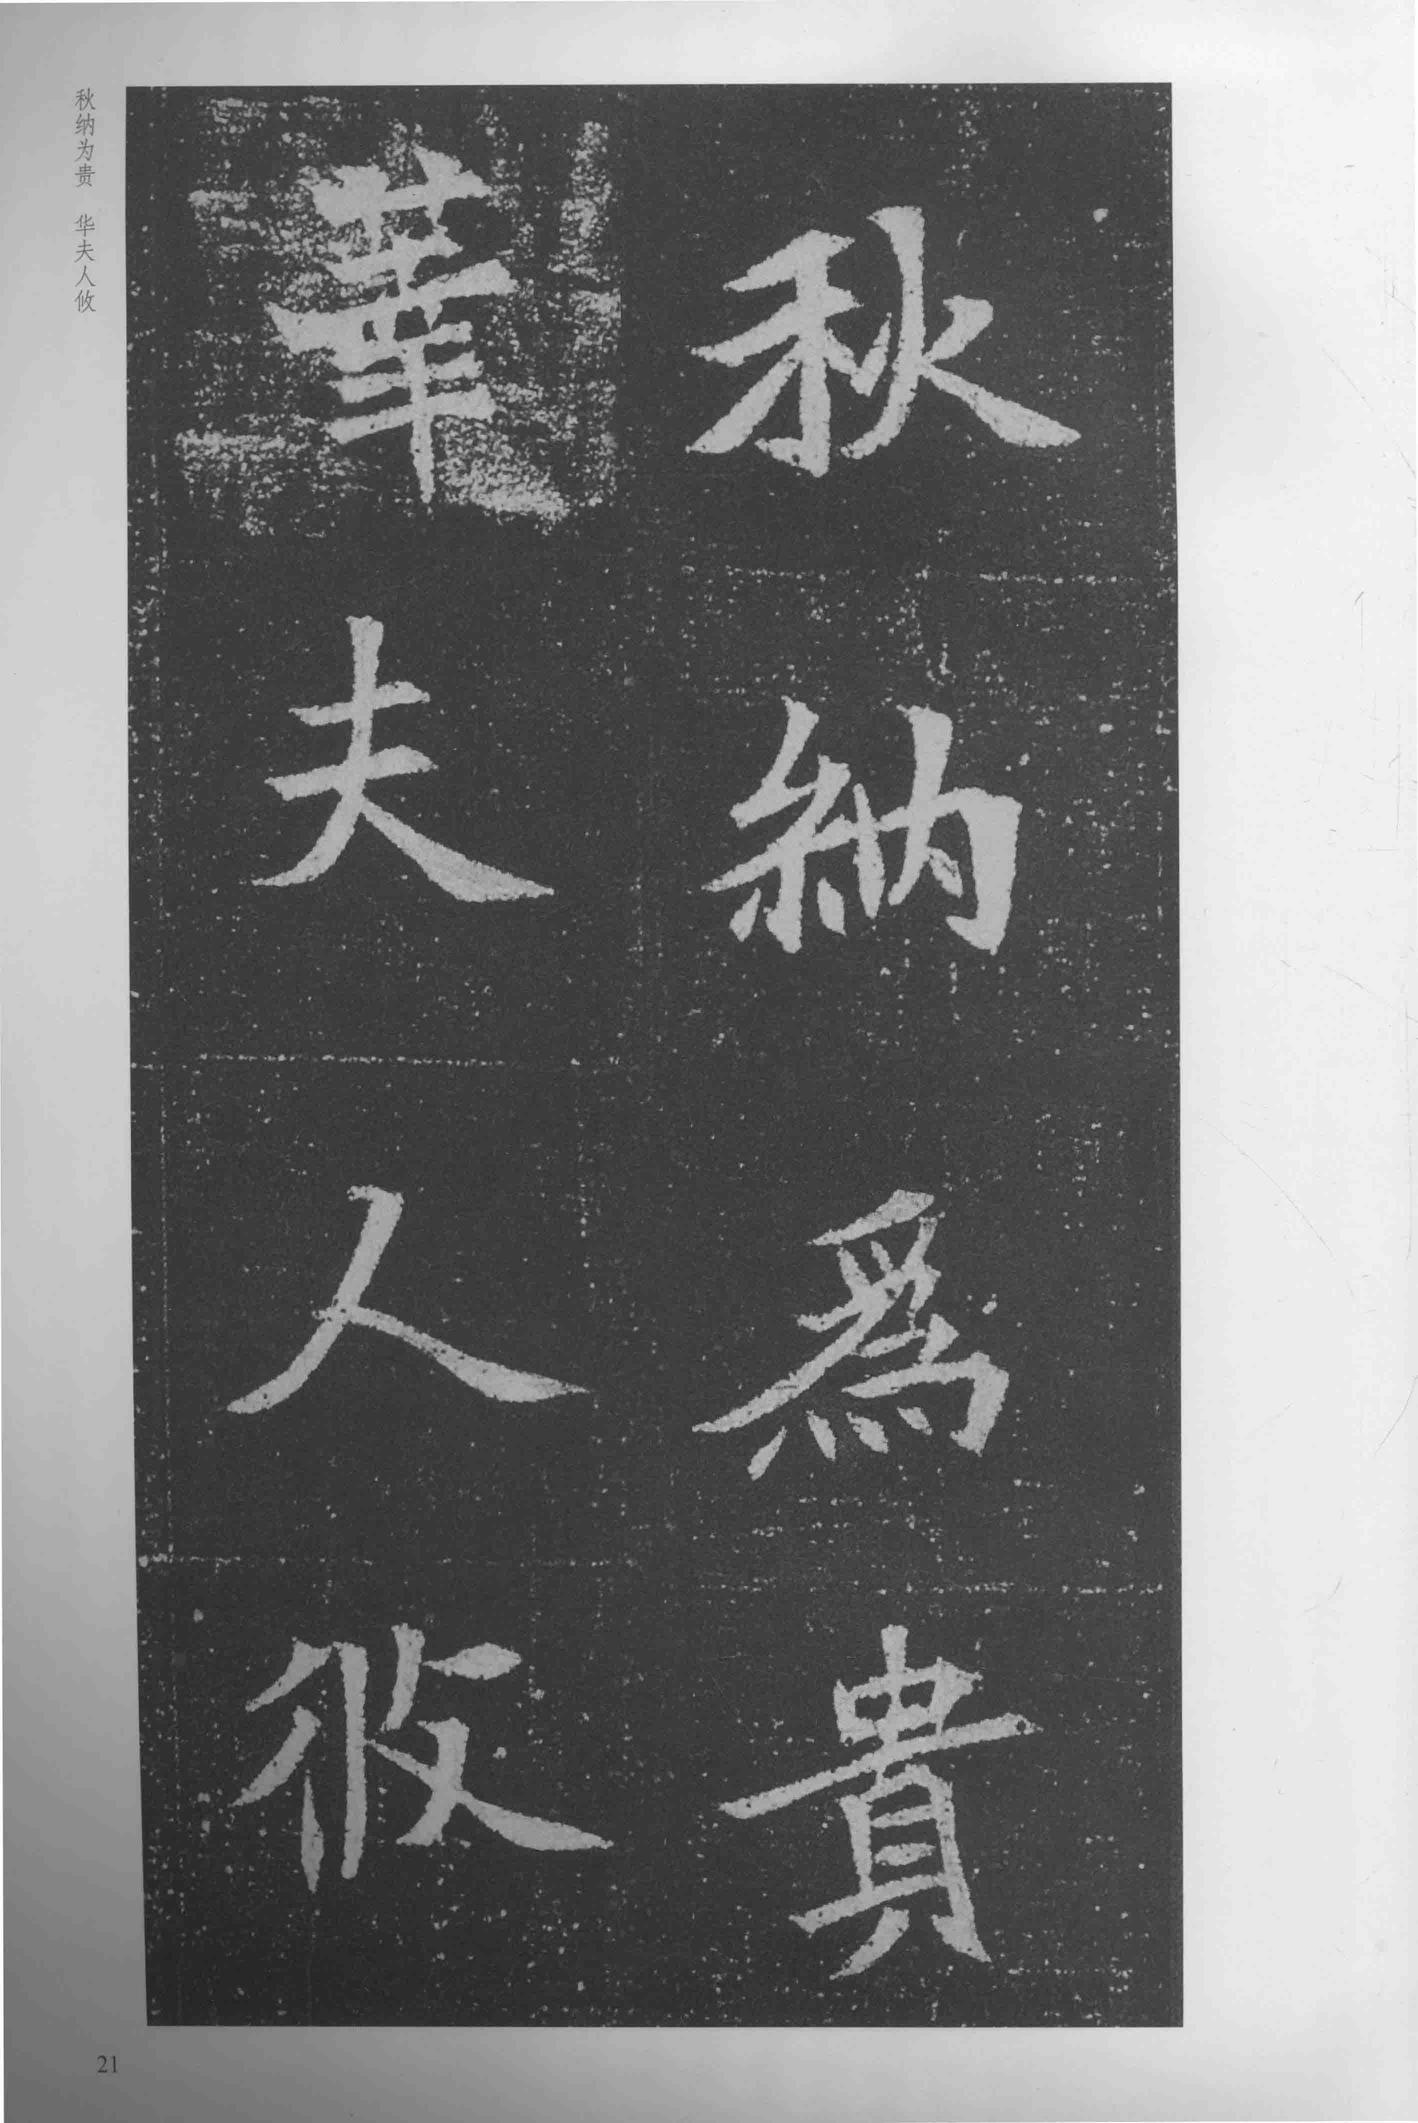 秋納為貴
華夫人攸
秋纳为贵　华夫人攸
21